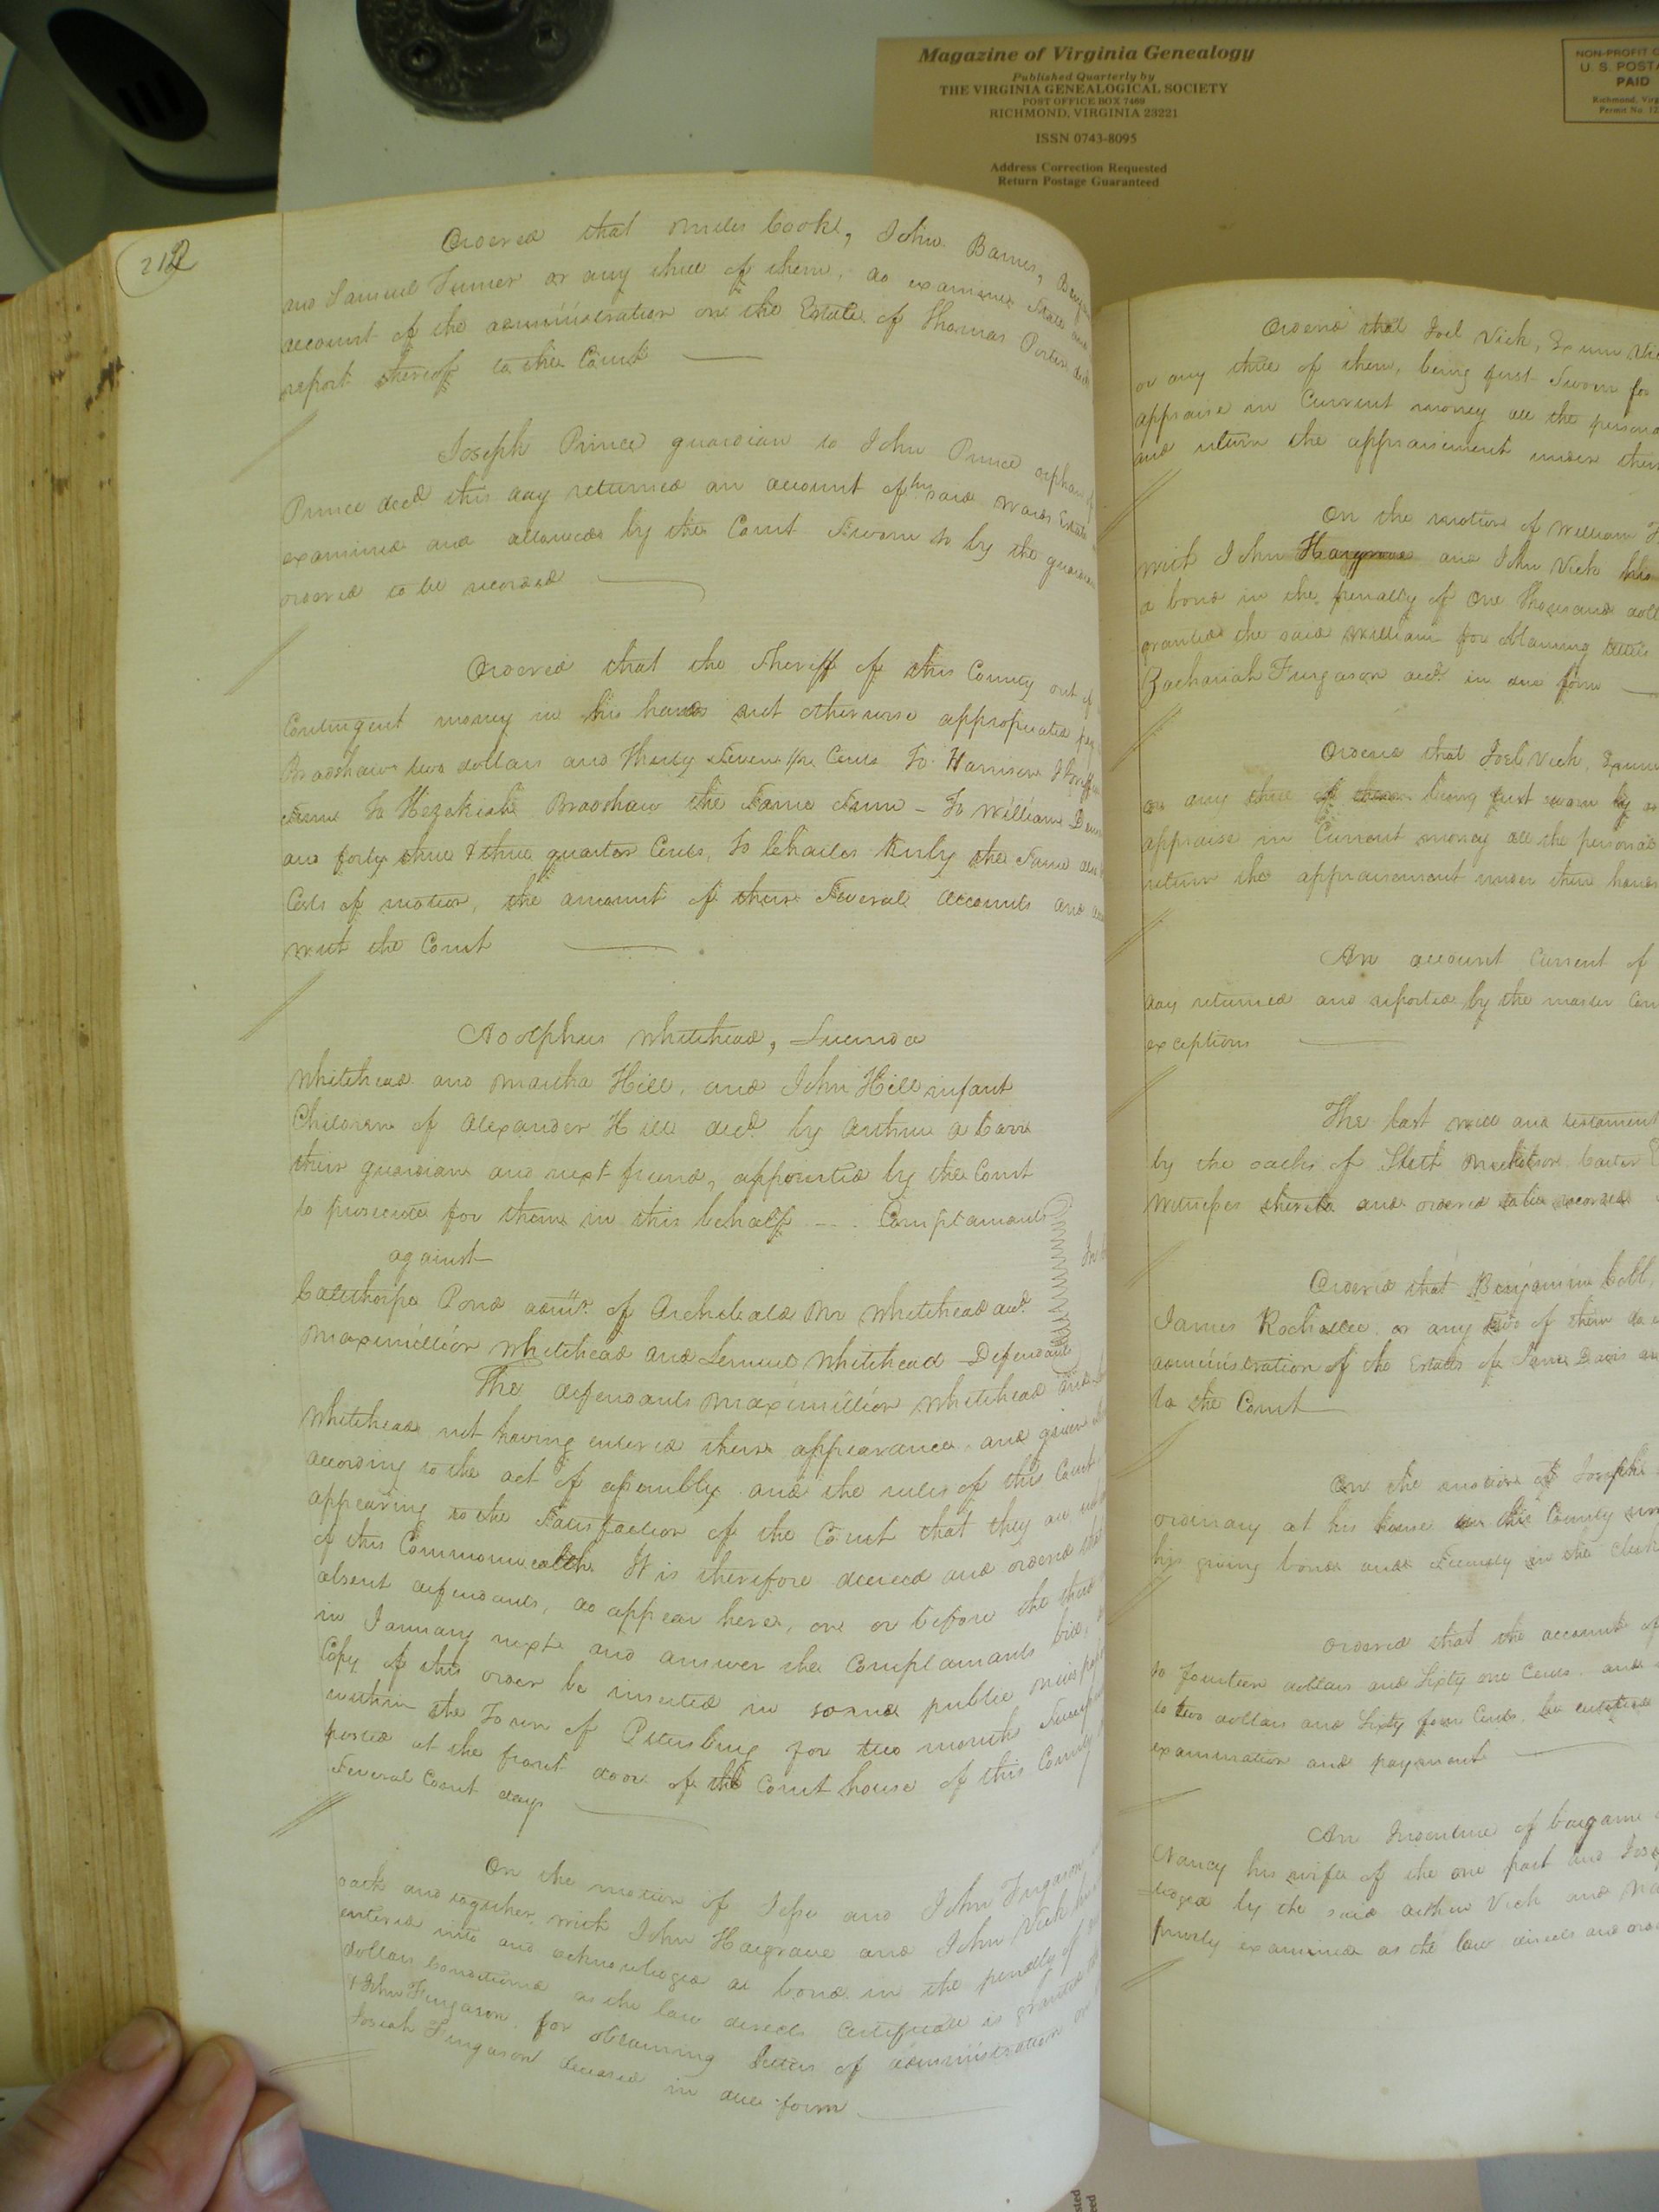 Magazine of Virginia Genealogy
Published Quarterly by
THE VIRGINIA GENEALOGICAL SOCIETY
POST OFFICE BOX 7469
RICHMOND, VIRGINIA 23221
ISSN 0743-8095
Address Correction Requested
Return Postage Guaranteed
NON-PROFIT O
U. S. POSTA
PAID
Richmond, Virg
Permit No. 12
212
Ordered that Miles Cooke, John Barnes,
and Samuel Turner or any three of them, do examine State and
account of the administration on the Estate of Thomas Porter decd
report thereof to the Court
Joseph Prince guardian to John Prince orphan of
Prince decd. this day returned an account of his said wards Estate
examined and allowed by the Court Sworn to by the guardian
ordered to be recorded
Ordered that the Sheriff of this County out of
Contingent money in his hands not otherwise appropriated pay
Bradshaw two dollars and thirty Seven 1/2 Cents To Harrison
same To Hezekiah Bradshaw the Same Sum - To William
and forty three & three quarter Cents, To Charles the Same
Cents of motion, the amount of their Several accounts and
with the Court
Adolphus Whitehead, Lucinda
Whitehead and Martha Hill, and John Hill infant
Children of Alexander Hill decd. by Arthur A Carr
their guardian and next friend, appointed by the Court
to prosecute for them in this behalf - . . Complainants
against
In
Calthorpe Pond admr. of Archibald M Whitehead decd.
Maximillion Whitehead and Lemuel Whitehead - Defendants
The defendants Maximillion Whitehead and
Whitehead not having entered their appearance, and given
according to the act of assembly and the rules of this Court,
appearing to the Satisfaction of the Court that they are not
of this Commonwealth. It is therefore decreed and ordered that
absent defendants, do appear here, on or before the third
in January next and answer the Complainants bill,
Copy of this order be inserted in some public news paper
within the Town of Petersburg for two months
posted at the front door of the Court house of this County
Several Court days
On the motion of Jesse and John Fergason
oath and together with John Hargrave and John Vick his
entered into and acknowledged a bond in the penalty of
dollars Conditioned as the law directs Certificate is granted
& John Fergason for obtaining letters of administration on
Josiah Fergason deceased in due form
Ordered that Joel Vick, Exum Vic
or any three of them, being first Sworn for
appraise in Current money all the persona
and return the appraisement under their
On the motion of William F
with John Hargrave and John Vick his
a bond in the penalty of One thousand doll
granted the said William for obtaining letters
Zachariah Furgason decd. in due form
Ordered that Joel Vick, Exum
or any three of them being first sworn
appraise in Current money all the personal
return the appraisement under their hands
An account Current of
day returned and reported by the master Com
exceptions
The last will and testament
by the oaths of
Witnesses thereto and ordered to be recorded
Ordered that Benjamin Cobb,
James Rochelle or any two of them do e
administration of the Estate of Davis
to the Court
On the motion of Joseph
ordinary at his house in this County
his giving bond and Security in the Clerk
Ordered that the account of
to fourteen dollars and Sixty one Cents and
to two dollars and Sixty four Cents, be
examination and payment
An Indenture of bargain
Nancy his wife of the one part and Jos
ledged by the said Arthur Vick and Na
privily examined as the law directs and ord